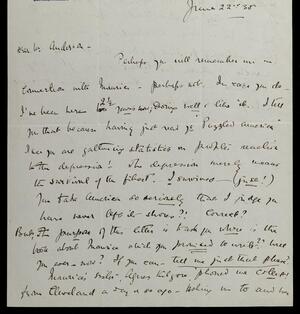 June 22nd 35
Dear Mr. Anderson -
Perhaps you will remember me in
connection with Maurice - perhaps not. In case you do -
I've been here 2½ years now, doing well & like it. I tell
you that because having just read yr "Puzzled America"
I see you are gathering statistics on people's reaction
to the depression! The depression merely means
the survival of the fittest. I survived - (just!)
You take America so seriously that I judge you
have never left it - shows?! Correct?
But the purpose of this letter is to ask you where is the
book about Maurice which you promised to write? Will
you ever - now? If you can - tell me just that please!
Maurice's sister - Agnes phoned me collect
from Cleveland a day or so ago - asking me to